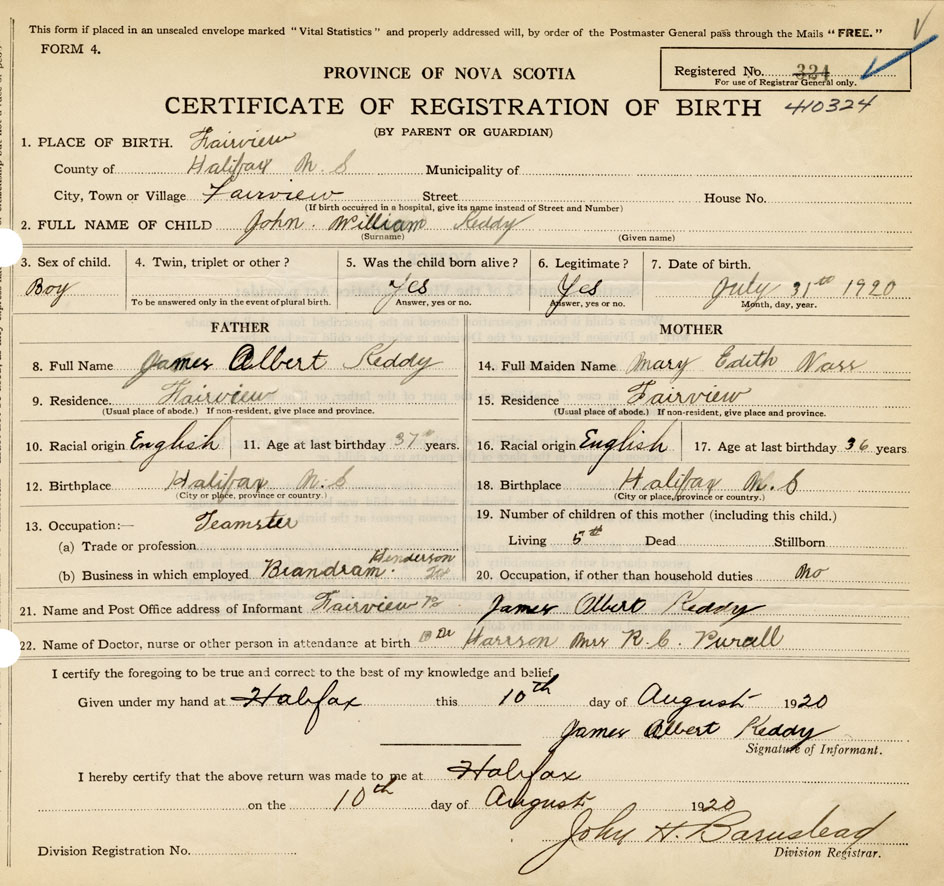 This form if placed in an unsealed envelope marked "Vital Statistics" and properly addressed will, by order of the Postmaster General pass through the Mails "FREE."
FORM 4.
PROVINCE OF NOVA SCOTIA
Registered No. 324
For use of Registrar General only.
CERTIFICATE OF REGISTRATION OF BIRTH 410324
(BY PARENT OR GUARDIAN)
1. PLACE OF BIRTH. Fairview
County of Halifax N. S Municipality of
City, Town or Village Fairview Street House No.
(If birth occurred in a hospital, give its name instead of Street and Number)
2. FULL NAME OF CHILD John William Keddy
(Surname) (Given name)
3. Sex of child. 4. Twin, triplet or other? 5. Was the child born alive? 6. Legitimate? 7. Date of birth.
Boy Yes Yes July 31st 1920
To be answered only in the event of plural birth. Answer, yes or no. Answer, yes or no. Month, day, year.
FATHER MOTHER
8. Full Name James Albert Keddy 14. Full Maiden Name Mary Edith Nass
9. Residence. Fairview 15. Residence Fairview
(Usual place of abode.) If non-resident, give place and province. (Usual place of abode.) If non-resident, give place and province.
10. Racial origin English 11. Age at last birthday 37 years. 16. Racial origin English 17. Age at last birthday 36 years
12. Birthplace Halifax N. S 18. Birthplace Halifax N. S
(City or place, province or country.) (City or place, province or country.)
13. Occupation:— Teamster 19. Number of children of this mother (including this child.)
(a) Trade or profession Living 5th Dead Stillborn
(b) Business in which employed Brandram Henderson 20. Occupation, if other than household duties No
21. Name and Post Office address of Informant Fairview James Albert Keddy
22. Name of Doctor, nurse or other person in attendance at birth Dr Mrs R. C. Purcell
I certify the foregoing to be true and correct to the best of my knowledge and belief.
Given under my hand at Halifax this 10th day of August 1920
James Albert Keddy
Signature of Informant.
I hereby certify that the above return was made to me at Halifax
on the 10th day of August 1920
John H. Barnstead
Division Registration No. Division Registrar.